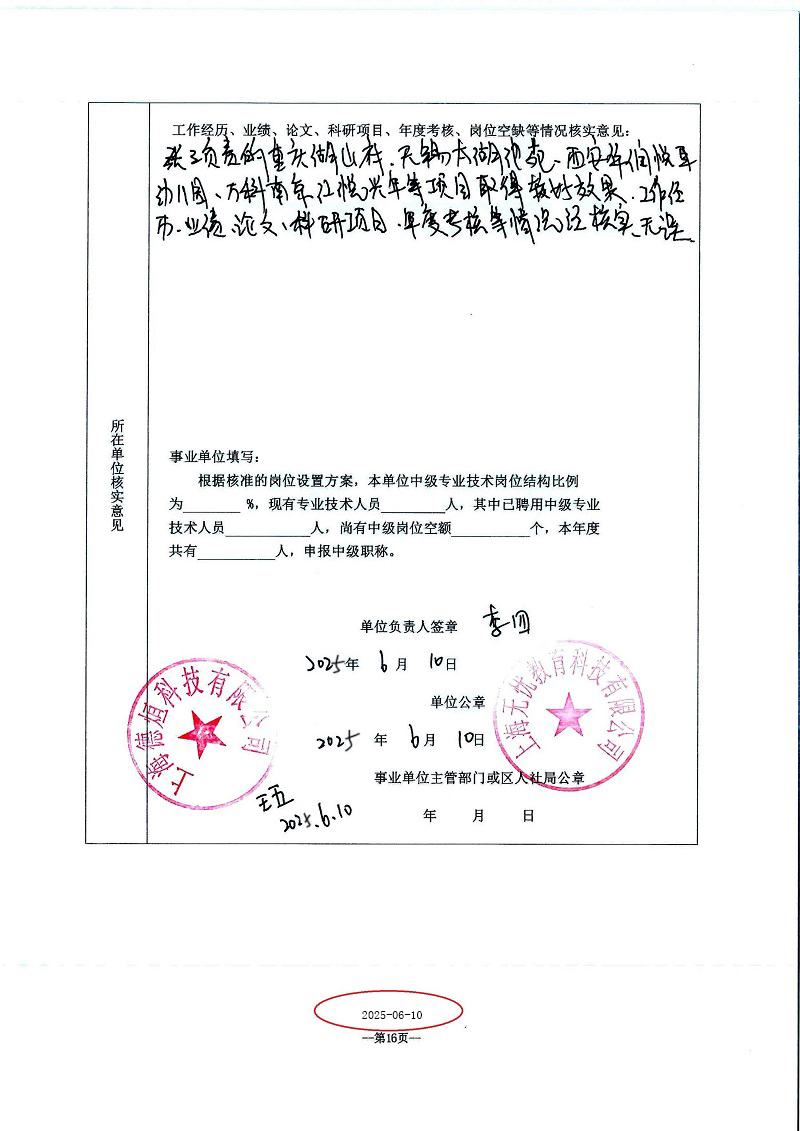 工作经历、业绩、论文、科研项目、年度考核、岗位空缺等情况核实意见：
张三负责的重庆湖山村、无锡太湖 苑、西安华润悦 
幼儿园、万科南京江悦兴年等项目取得较好效果、工作经
历、业绩、论文、科研项目、年度考核等情况经核实、无误
所在单位核实意见
事业单位填写：
根据核准的岗位设置方案，本单位中级专业技术岗位结构比例
为________ %，现有专业技术人员_________人，其中已聘用中级专业
技术人员____________人，尚有中级岗位空额___________个，本年度
共有___________人，申报中级职称。
单位负责人签章 李四
2025年 6月 10日
单位公章
2025 年 6月 10日
事业单位主管部门或区人社局公章
年 月 日
上海德恒科技有限公司
上海无忧教育科技有限公司
王五
2025.6.10
2025-06-10
--第16页--